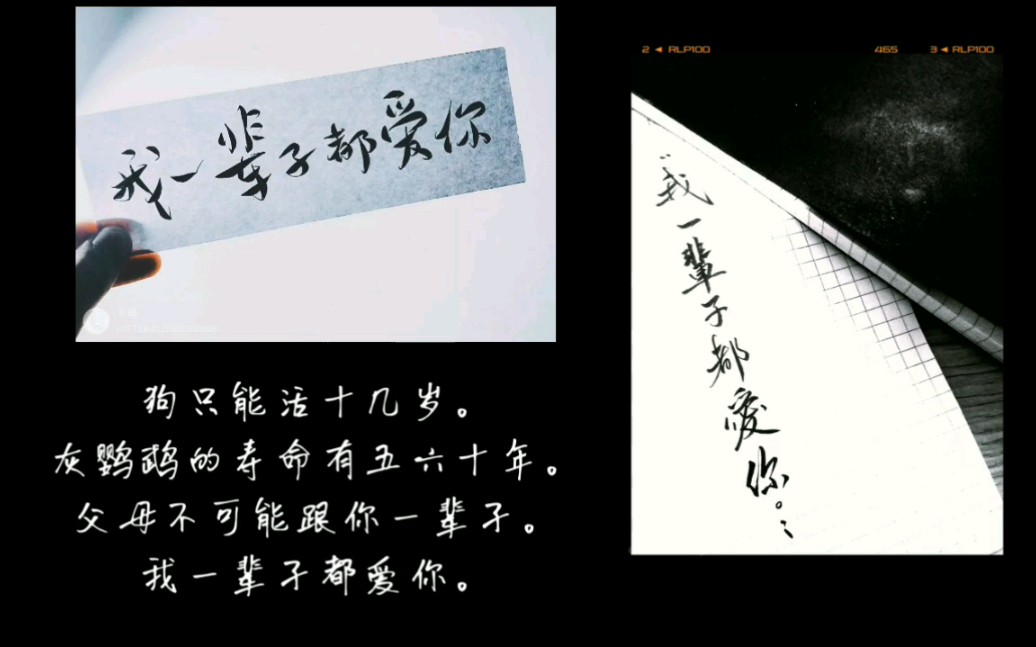 我一辈子都爱你
狗只能活十几岁。
灰鹦鹉的寿命有五六十年。
父母不可能跟你一辈子。
我一辈子都爱你。
2 ◄ RLP100
465
3 ◄ RLP100
我一輩子都愛你。